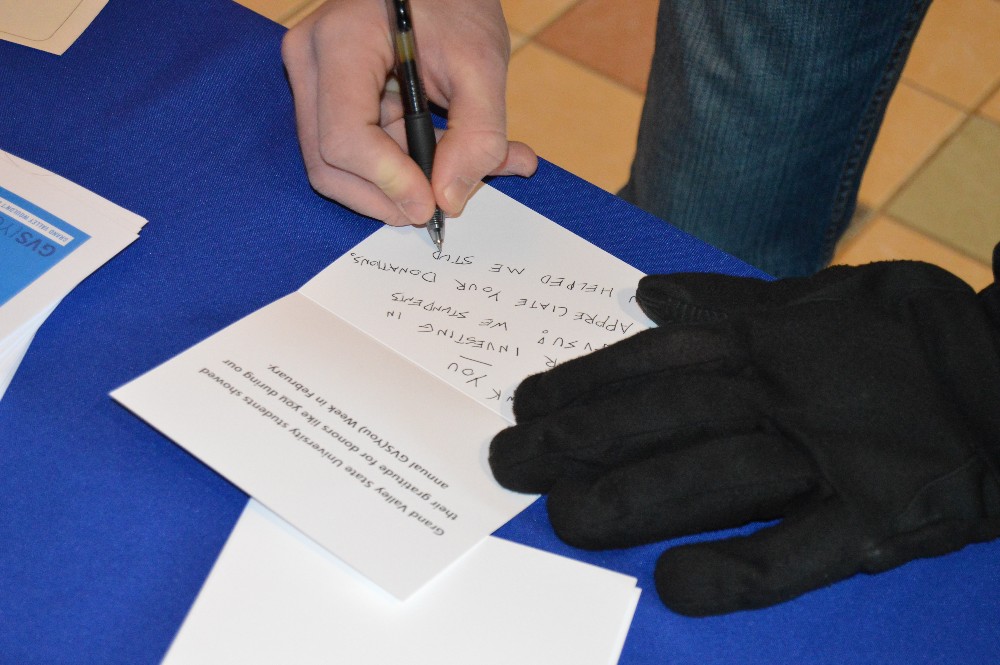 GVS(YO
GRAND VALLEY WOULDN'T
NK YOU
R INVESTING IN
VSU! WE STUNDENTS
APPRECIATE YOUR DONATIONS.
U HELPED ME STUD
Grand Valley State University students showed
their gratitude for donors like you during our
annual GVS(You) Week in February.